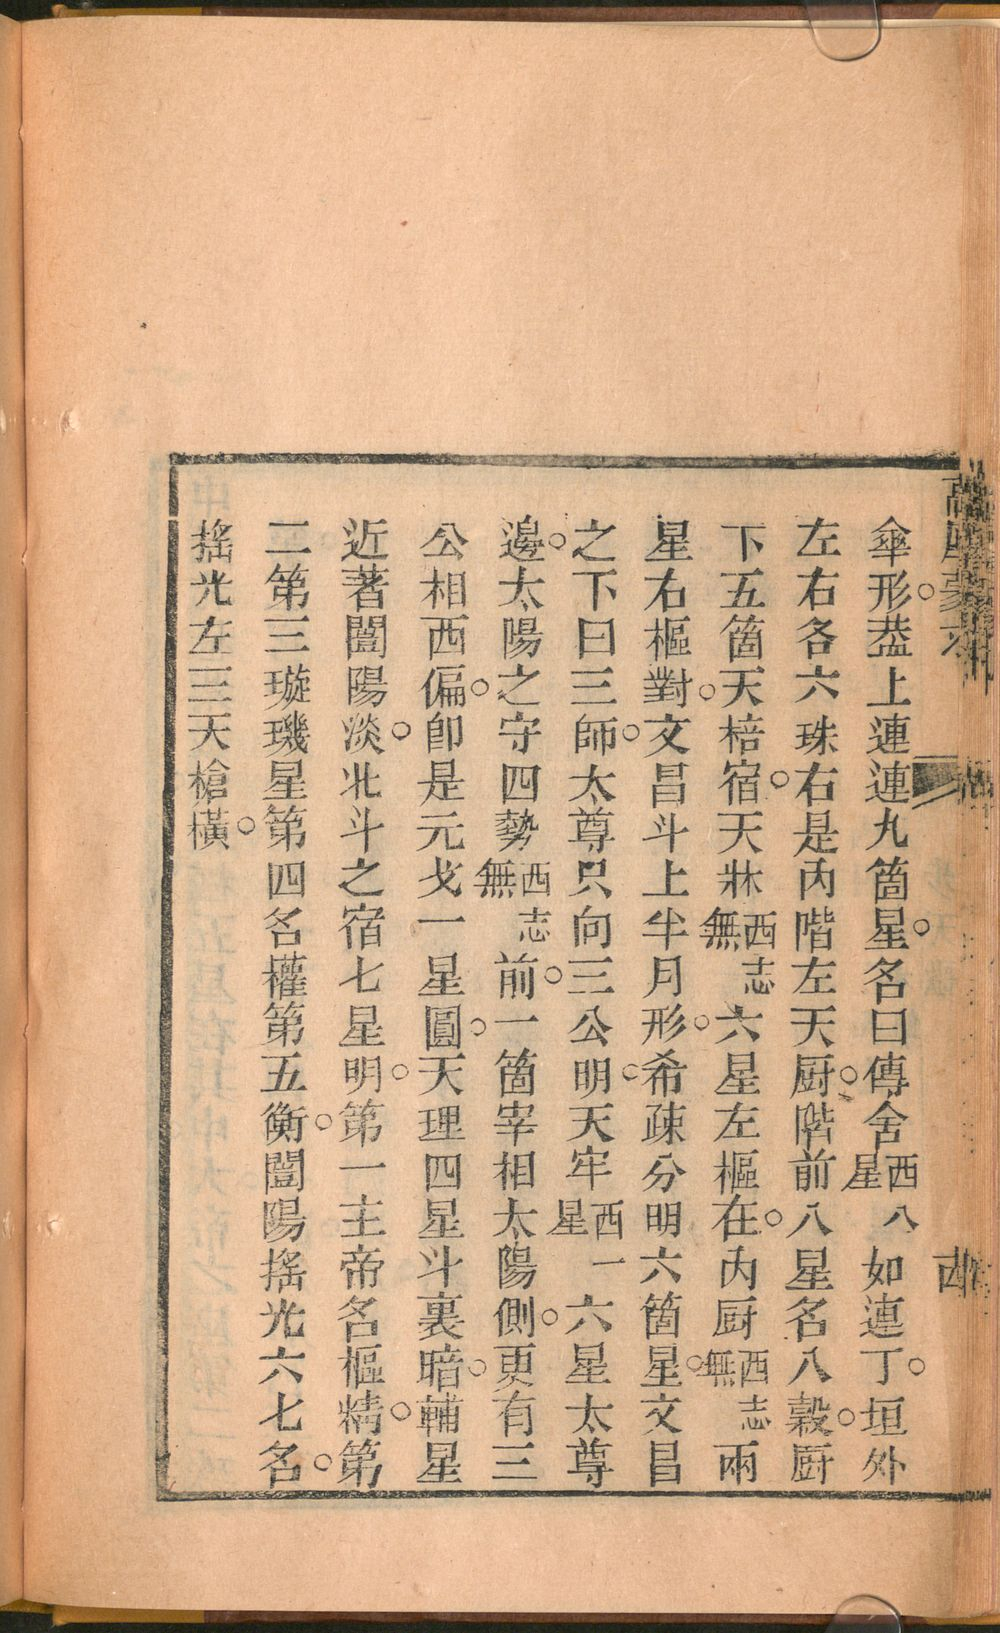 傘形。蓋上連連九箇星。名曰傳舍西八星如連丁。垣外
左右各六珠右是內階左天厨。階前八星名八穀。厨
下五箇天棓宿。天牀西志無六星左樞在。內厨西志無兩
星右樞對。文昌斗上半月形。希疎分明六箇星。文昌
之下曰三師。太尊只向三公明。天牢西一星六星太尊
邊。太陽之守四勢西志無前。一箇宰相太陽側。更有三
公相西偏。卽是元戈一星圓。天理四星斗裏暗。輔星
近著闓陽淡。北斗之宿七星明。第一主帝名樞精。第
二第三璇璣星第四名權第五衡。闓陽搖光六七名。
搖光左三天槍橫。